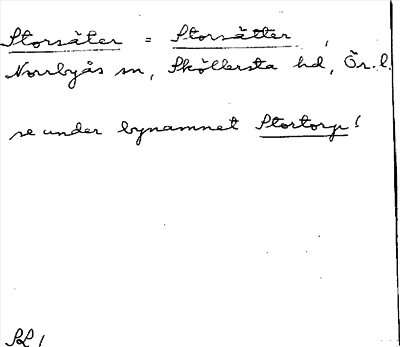 Storsäter = Storsätter,
Norrbyås sn, Sköllersta hd, Ör. l.
se under bynamnet Stortorp!